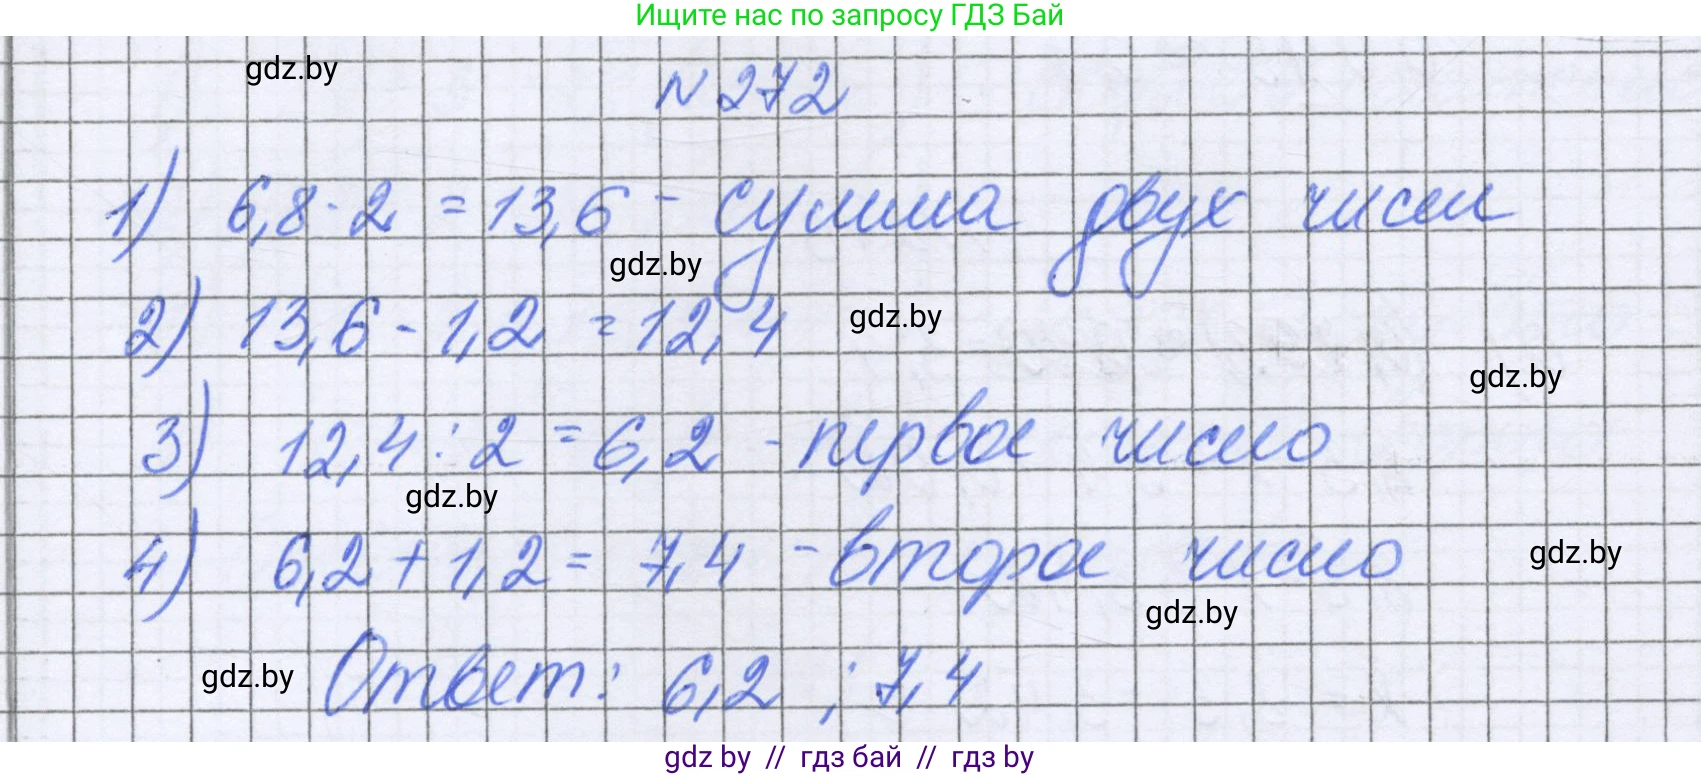 Ищите нас по запросу ГДЗ Бай
gdz.by
N 272
1) 6,8 · 2 = 13,6 - сумма двух чисел
gdz.by
2) 13,6 - 1,2 = 12,4
gdz.by
gdz.by
3) 12,4 : 2 = 6,2 - первое число
gdz.by
4) 6,2 + 1,2 = 7,4 - второе число
gdz.by
gdz.by
gdz.by
Ответ: 6,2 ; 7,4
gdz by // гдз бай // гдз by